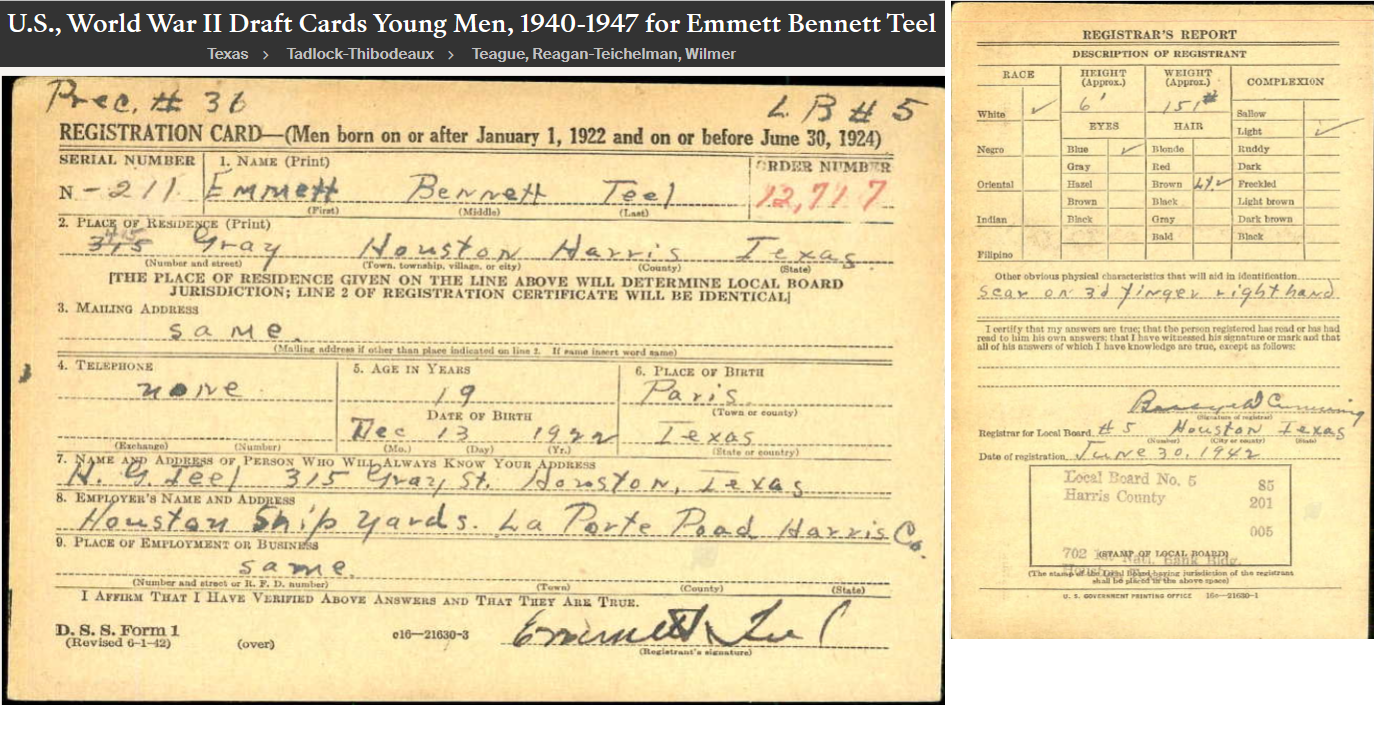 U.S., World War II Draft Cards Young Men, 1940-1947 for Emmett Bennett Teel
Texas > Tadlock-Thibodeaux > Teague, Reagan-Teichelman, Wilmer
Prec. # 36 L B # 5
REGISTRATION CARD—(Men born on or after January 1, 1922 and on or before June 30, 1924)
SERIAL NUMBER 1. NAME (Print) ORDER NUMBER
N - 211. Emmett Bennett Teel 12,717
(First) (Middle) (Last)
2. PLACE OF RESIDENCE (Print)
315 Gray Houston Harris Texas.
(Number and street) (Town, township, village, or city) (County) (State)
[THE PLACE OF RESIDENCE GIVEN ON THE LINE ABOVE WILL DETERMINE LOCAL BOARD
JURISDICTION; LINE 2 OF REGISTRATION CERTIFICATE WILL BE IDENTICAL]
3. MAILING ADDRESS
same.
(Mailing address if other than place indicated on line 2. If same insert word same)
4. TELEPHONE 5. AGE IN YEARS 6. PLACE OF BIRTH
none. 19 Paris.
DATE OF BIRTH (Town or county)
Dec 13 1922 Texas
(Exchange) (Number) (Mo.) (Day) (Yr.) (State or country)
7. NAME AND ADDRESS OF PERSON WHO WILL ALWAYS KNOW YOUR ADDRESS
H. G. Teel 315 Gray St. Houston, Texas
8. EMPLOYER'S NAME AND ADDRESS
Houston Ship yards. La Porte Road Harris Co.
9. PLACE OF EMPLOYMENT OR BUSINESS
same.
(Number and street or R. F. D. number) (Town) (County) (State)
I AFFIRM THAT I HAVE VERIFIED ABOVE ANSWERS AND THAT THEY ARE TRUE.
D. S. S. Form 1
(Revised 6-1-42) (over) c16—21630-3 Emmett Teel
(Registrant's signature)
REGISTRAR'S REPORT
DESCRIPTION OF REGISTRANT
RACE HEIGHT (Approx.) WEIGHT (Approx.) COMPLEXION
White ✓ 6' 151# Sallow
EYES HAIR Light ✓
Negro Blue ✓ Blonde Ruddy
Gray Red Dark
Oriental Hazel Brown ✓ Freckled
Brown Black Light brown
Indian Black Gray Dark brown
Bald Black
Filipino
Other obvious physical characteristics that will aid in identification
scar on 3d finger right hand.
I certify that my answers are true; that the person registered has read or has had
read to him his own answers; that I have witnessed his signature or mark and that
all of his answers of which I have knowledge are true, except as follows:
(Signature of registrar)
Registrar for Local Board # 5 Houston Texas
(Number) (City or county) (State)
Date of registration June 30, 1942
Local Board No. 5 85
Harris County 201
005
702 1st Natl. Bank Bldg.
(STAMP OF LOCAL BOARD)
(The stamp of the Local Board having jurisdiction of the registrant
shall be placed in the above space)
U. S. GOVERNMENT PRINTING OFFICE 16—21630-1